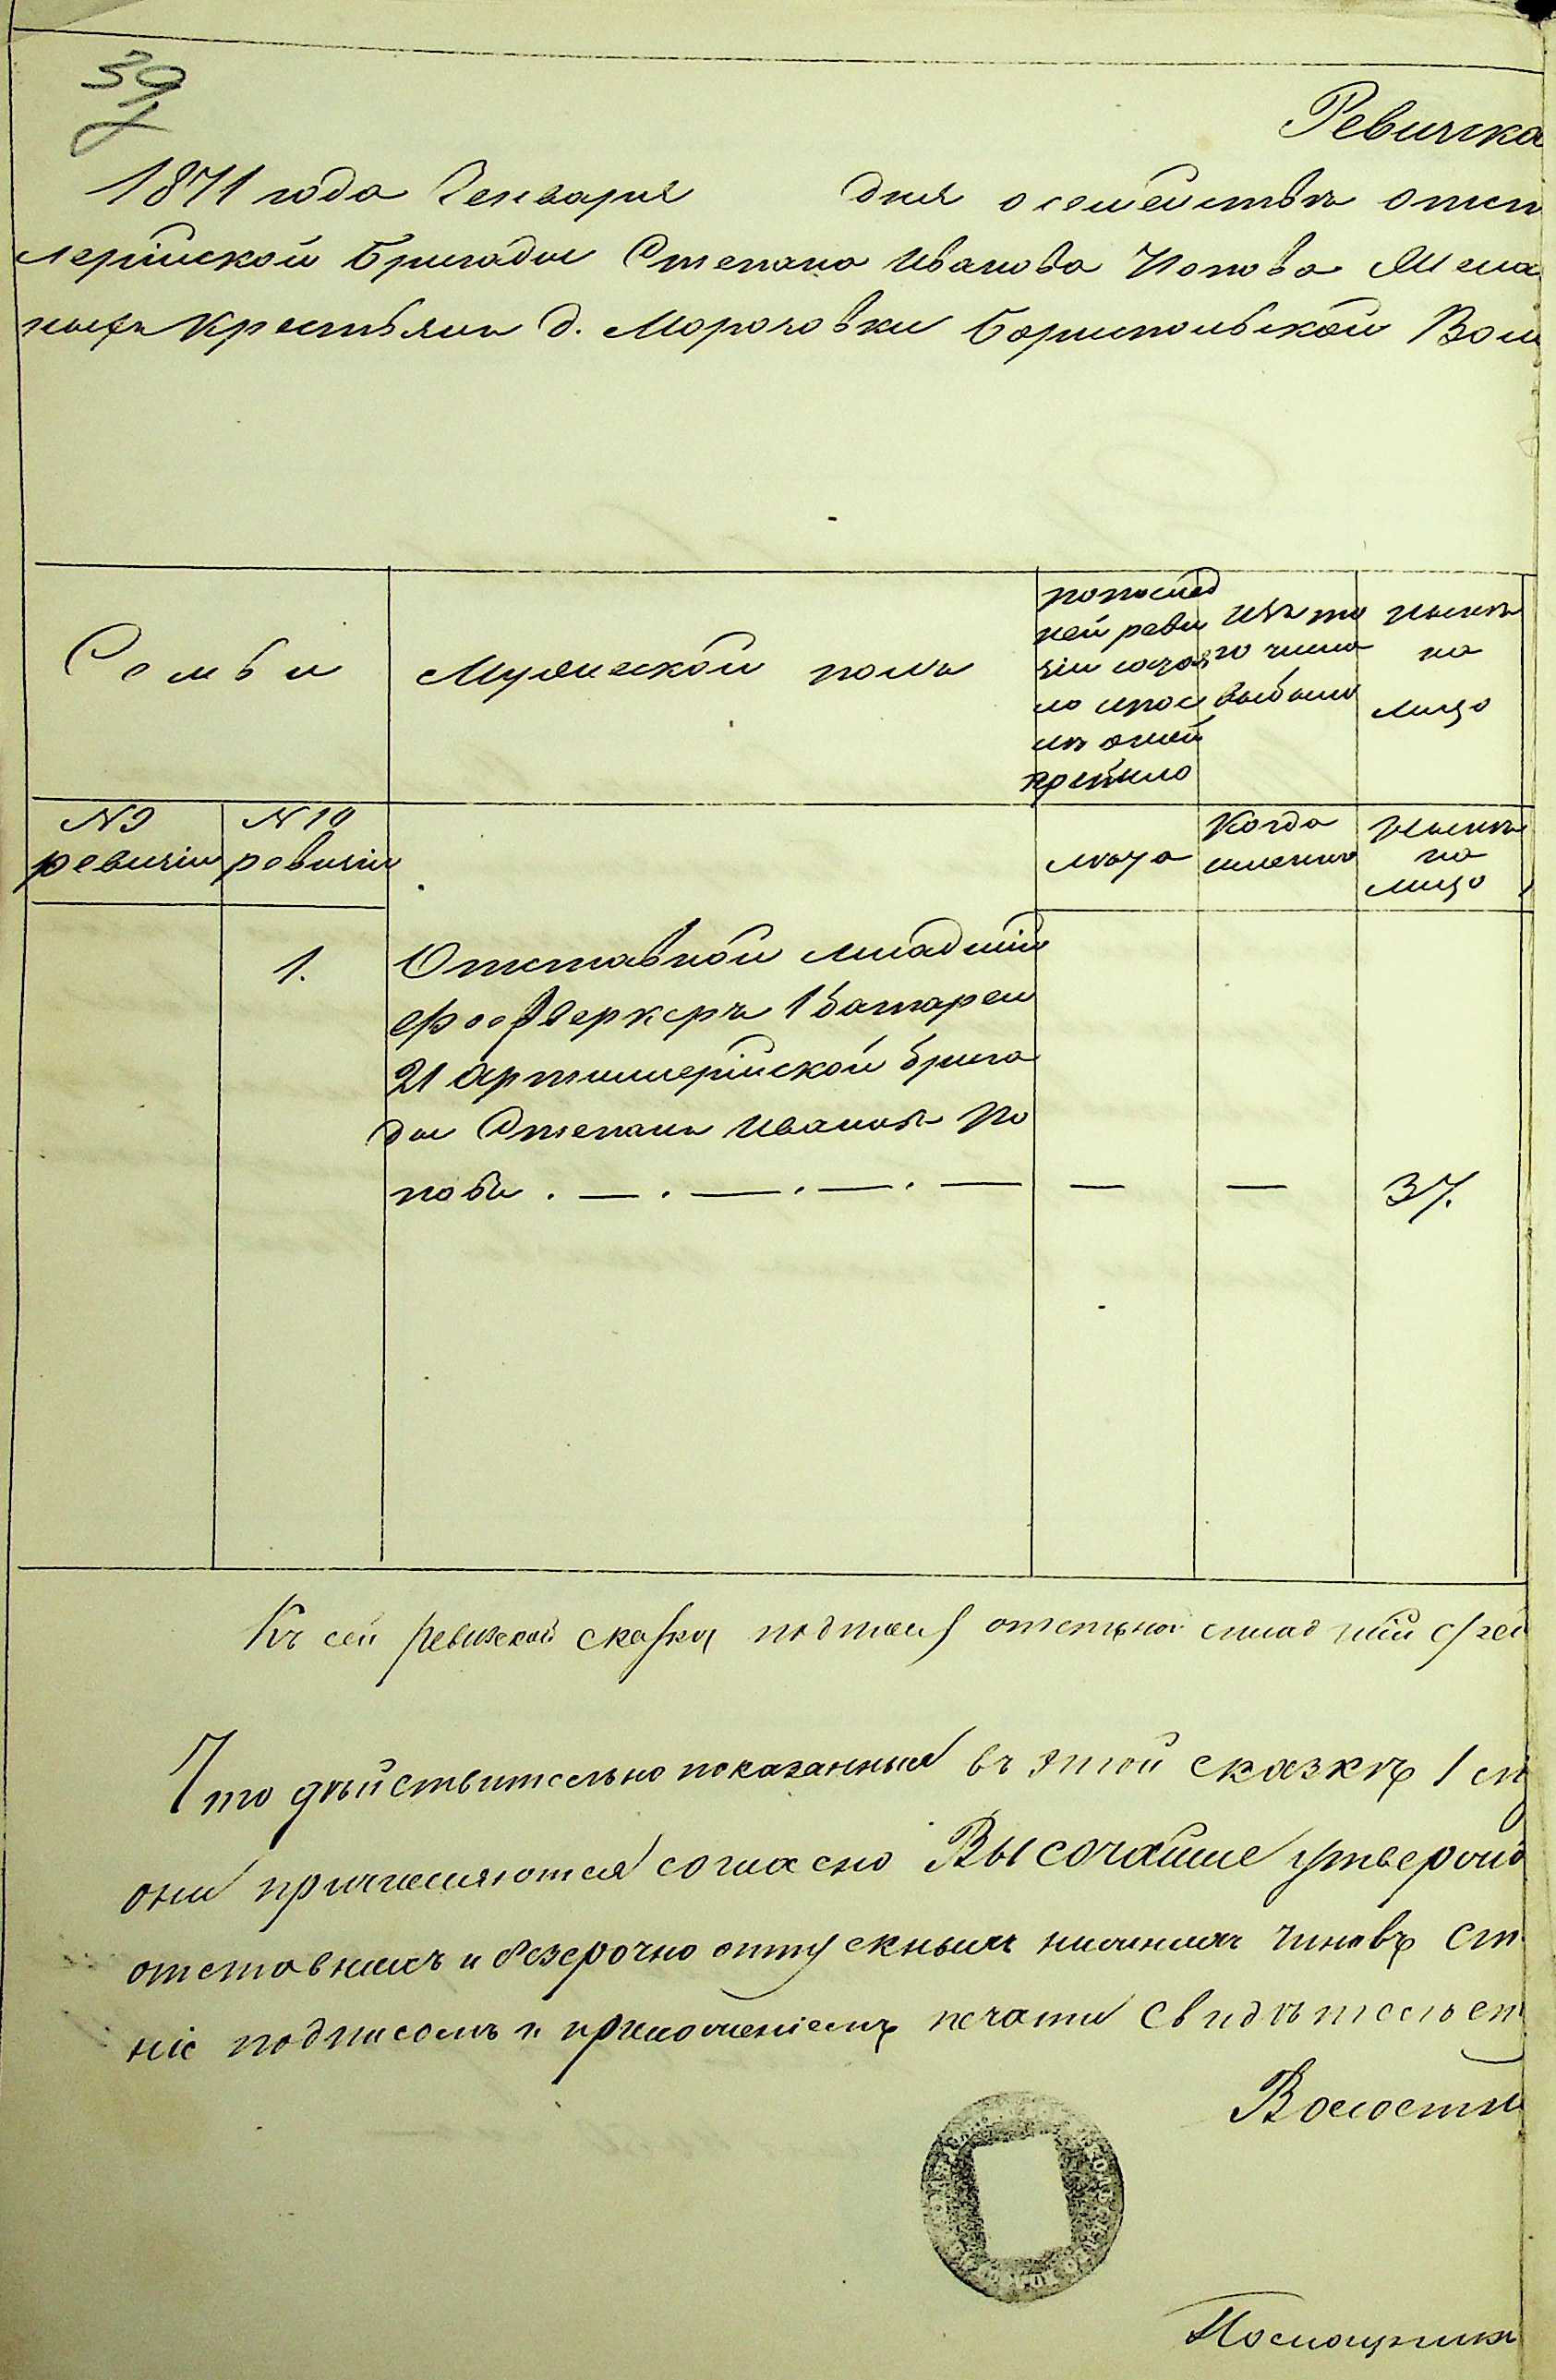 39
Ревизска
1871 года Генваря дня о семействѣ отст
лерійской бригады Степана Иванова Попова Жела
ныхъ крестьянъ д. Морозовки Бориспольской Вол
Семьи
Мужеской полъ
по послѣд
ней реви
зіи состоя
ло и посл
ѣ оной
прибыло
Изъ то
го числа
выбыло
Нынѣ
на
лицо
№ 9
ревизіи
№ 10
ревизіи
лѣта
Когда
именно
Нынѣ
на
лицо
1.
Отставной младшій
фееерверкеръ 1 батареи
21 Артиллерійской брига
ды Степанъ Ивановъ По
повъ . — . — . — . — — — 37.
Къ сей ревизской сказкѣ отставной младшій
Что дѣйствительно показанный въ этой сказкѣ 1
они причисляются согласно Высочайше утвержд
отставныхъ и безсрочно отпускныхъ нижнихъ чиновъ
ніе подписомъ и приложеніемъ печати свидѣтельст
Волостн
Помощник